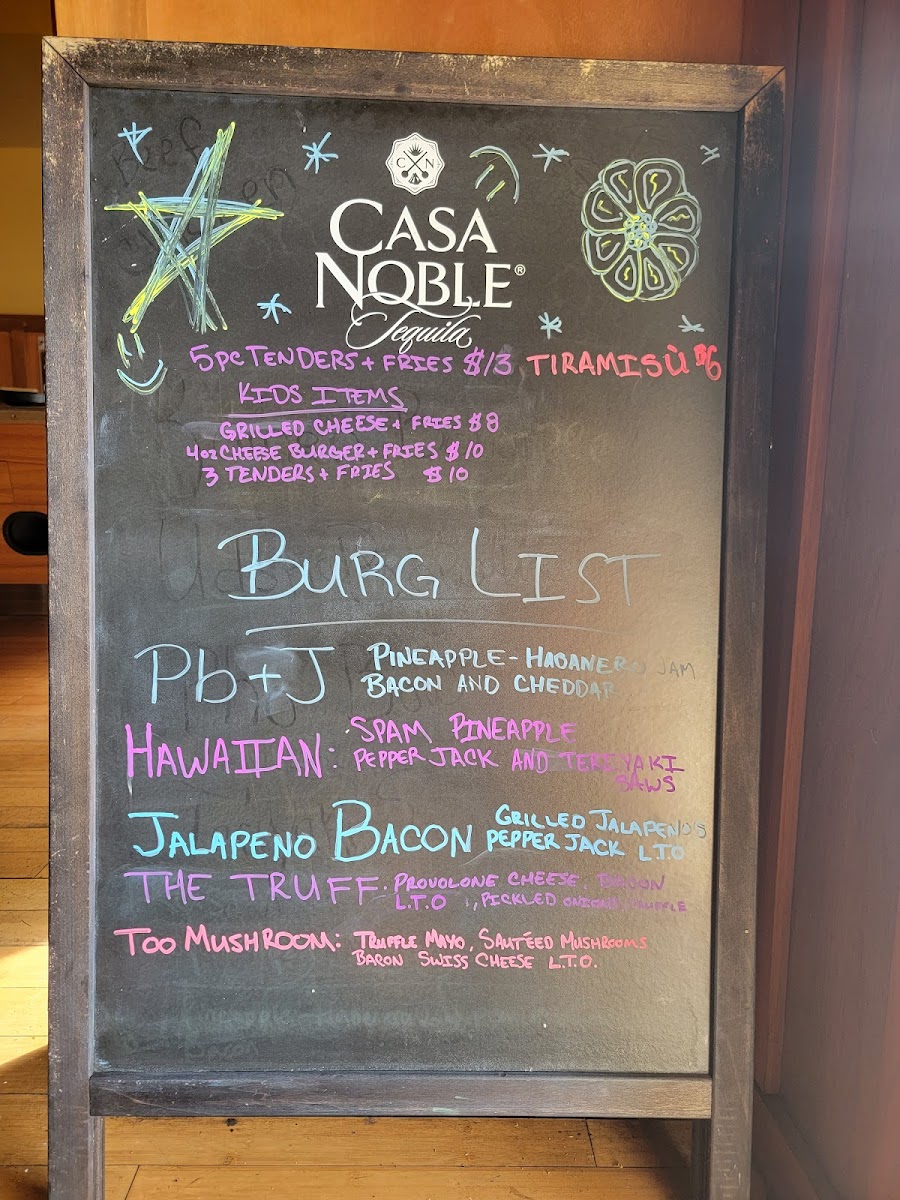 C N
CASA
NOBLE®
Tequila
5PC TENDERS + FRIES $13 TIRAMISÙ $6
KIDS ITEMS
GRILLED CHEESE + FRIES $8
4oz CHEESE BURGER + FRIES $10
3 TENDERS + FRIES $10
BURG LIST
Pb+J PINEAPPLE-HABANERO JAM
BACON AND CHEDDAR
HAWAIIAN: SPAM PINEAPPLE
PEPPER JACK AND TERIYAKI
SAWS
JALAPENO BACON GRILLED JALAPENO'S
PEPPER JACK L.T.O
THE TRUFF. PROVOLONE CHEESE, BACON
L.T.O , PICKLED ONIONS, TRUFFLE
TOO MUSHROOM: TRUFFLE MAYO, SAUTÉED MUSHROOMS
BACON SWISS CHEESE L.T.O.